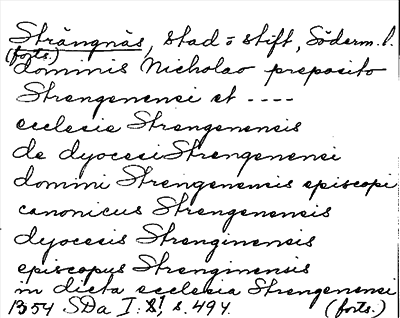 Strängnäs, stad o stift, Söderm. l.
(forts.)
dominis Nicholao preposito
Strengenensi et ----
ecclesie Strengenensis
de dyocesi Strengenensi
domini Strengenensis episcopi
canonicus Strengenensis
dyocesis Strenginensis
episcopus Strenginensis
in dicta ecclesia Strengenensi
1354 SDa I: 8, s. 494. (forts.)